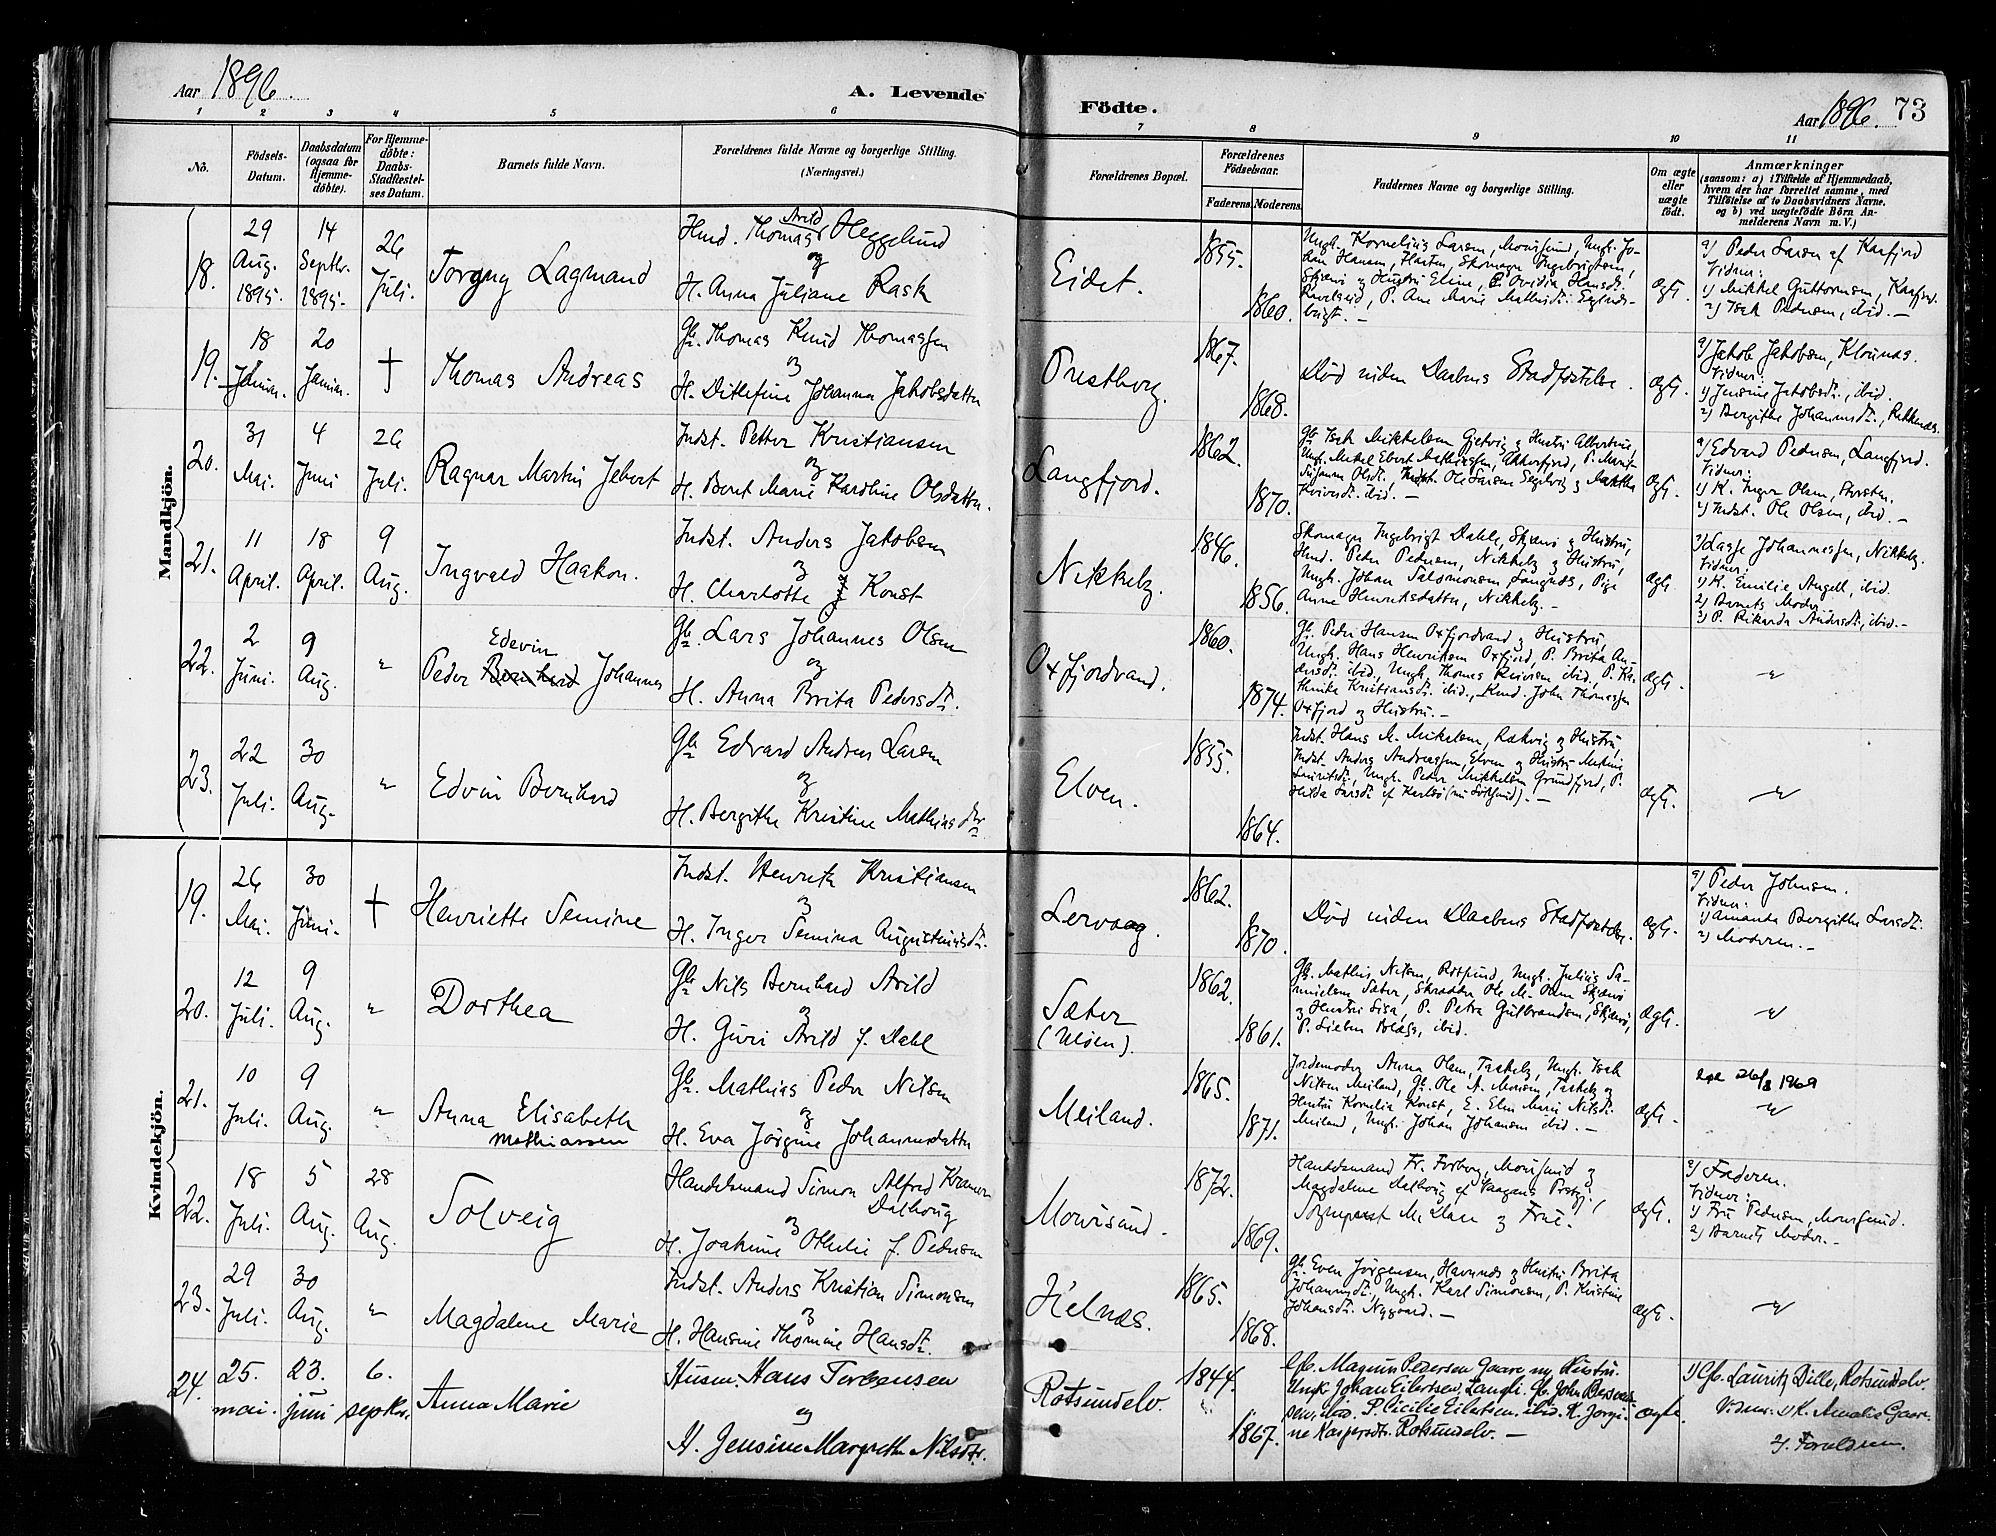 Aar 1896.
A. Levende
Födte.
Aar 1896. 73
1 2 3 4 5 6 7 8 9 10 11
No.
Födsels-Datum.
Daabsdatum (ogsaa for Hjemme-döbte).
For Hjemme-döbte: Daabs-Stadfæstel-ses Datum.
Barnets fulde Navn.
Forældrenes fulde Navne og borgerlige Stilling. (Næringsvei.)
Forældrenes Bopæl.
Forældrenes Födselsaar.
Faderens. Moderens.
Faddernes Navne og borgerlige Stilling.
Om ægte eller uægte födt.
Anmærkninger
(saasom: a) i Tilfælde af Hjemmedaab, hvem der har forrettet samme, med Tilföielse af to Daabsvidners Navne. og b) ved uægtefödte Börn An-melderens Navn m. V.)
Mandkjön.
18. 29 Aug. 1895. 14 Septbr. 1895. 26 Juli. Torgny Lagmand
Hmd. Thomas Arild Heggelund
og
H. Anna Juliane Rask
Eidet. 1855. 1860.
Ungk. Kornelius Larsen, Maursund, Ungk. Jo-
han Hansen, Flaten, Skomager Ingebrigtsen,
Skjærvö og Hustru Eline, P. Ovidia Hansdt.
P. Ane Marie
Ægt.
a) Peder Larsen af Kaafjord
Vidner:
1) Mikkel Guttormsen, Kaafjord.
2) Isak Pedersen, ibid. —
19. 18 Januar. 20 Januar. † Thomas Andreas
Gb. Thomas Knud Thomassen
og
H. Ditlefine Johanna Jakobsdatter
Prestberg. 1867. 1868.
Död inden Daabens Stadfæstelse.
Ægt.
a) Jakob Jakobsen,
Vidner:
1) Jensine Jakobsdt., ibid.
2) Bergithe Johannsdt.,
20. 31 Mai. 4 Juni 26 Juli. Ragnar Martin Jebert
Indst. Petter Kristiansen
og
H. Beret Marie Karoline Olsdatter.
Langfjord. 1862. 1870.
Gb. Isak Mikkelsen og Hustru Albertine,
Ungk. Mikal Ebert Mathiassen, Akkarfjord, P. Marit
Susanna Olsdt., Indst. Ole Larsen Segelvig og Martha
ibid. —
Ægt.
a) Edvard Pedersen, Langfjord.
Vidner:
1) K. Inger Olsen,
2) Indst. Ole Olsen, ibid. —
21. 11 April. 18 April. 9 Aug. Ingvald Haakon.
Indst. Anders Jakobsen
og
H. Charlotte f. Konst
Nikkelby. 1846. 1856.
Skomager Ingebrigt Dahl, Skjærvö og Hustru,
Hmd. Peder Pedersen, Nikkelby og Hustru,
Ungk. Johan Salomonsen, Langnes, Pige
Anne Henriksdatter, Nikkelby. —
Ægt.
a) Lasse Johannessen, Nikkelby.
Vidner:
1) K. Emilie Angell, ibid.
2) Barnets Moder
3) P. Rikarda Andersdt., ibid. —
22. 2 Juni. 9 Aug. " Peder Edevin Bernhard Johannes
Gb. Lars Johannes Olsen
og
H. Anna Brita Pedersdt.
Oxfjordvand. 1860. 1874.
Gb. Peder Hansen Oxfjordvand og Hustru,
Ungk. Hans Henriksen Oxfjord, P. Brita An-
dersdt. ibid, Ungk. Thomas ibid, P. Ka-
thinka Kristiansdt. ibid., Kmd. John Thomassen
Oxfjord og Hustru. —
Ægt. "
23. 22 Juli. 30 Aug. " Edvin Bernhard
Gb. Edvard Andreas Larsen
og
H. Bergithe Kristine Mathiasdtr
Elven. 1855. 1864.
Indst. Hans M. Mikkelsen, Rakvig og Hustru,
Indst. Anders Andreassen, Elven og Hustru
Ungk. Peder Mikkelsen Grundfjord, P.
Hilda Larsdt. af Karlsö —
Ægt. "
Kvindekjön.
19. 26 Mai. 30 Juni. † Henriette Semine
Indst. Henrik Kristiansen
og
H. Inger Semina Augustinusdt.
Lervaag. 1862. 1870.
Död inden Daabens Stadfæstelse.
Ægt.
a) Peder Johnsen.
Vidner:
1) Amanda Bergithe Larsdt.
2) Moderen. —
20. 12 Juli. 9 Aug. " Dorthea
Gb. Nils Bernhard Arild
og
H. Guri Arild f. Dahl
Sæter (Ulöen). 1862. 1861.
Gb. Mathis Nilsen, Rotsund, Ungk. Julius Sa-
muelsen Sæter, Skrædder Ole M. Olsen Skjærvö
og Hustru Lisa, P. Petra Gulbrandsen, Skjærvö,
ibid.
Ægt. "
21. 10 Juli. 9 Aug. " Anna Elisabeth Mathiassen
Gb. Mathias Peder Nilsen
og
H. Eva Jörgine Johannesdatter
Meiland. 1865. 1871.
Jordemoder Anna Olsen, Taskeby, Ungk. Isak
Nilsen Meiland, Gb. Ole A. Monsen, Taskeby og
Hustru Kornelia Konst, E. Elen Marie Nilsdt.
Meiland, Ungk. Johan Johansen ibid. —
Ægt.
26/8 1969
"
22. 18 Juli. 5 Aug. 28 Aug. Solveig
Handelsmand Simon Alfred Kramer Dalborg
og
H. Joakime Othelie f. Pedersen
Maursund. 1872. 1869.
Handelsmand Fr. Forberg, Maursund og
Magdalene Dalborg af Vaagans Prstgj.,
Sogneprest M. og Frue.
Ægt.
a) Faderen.
Vidner:
1) Fru Pedersen, Maursund.
2) Barnets Moder. —
23. 29 Juli. 30 Aug. " Magdalene Marie
Indst. Anders Kristian Simonsen
og
H. Hansine Thomine Hansdt.
Helnes. 1865. 1868.
Gb. Even Jörgensen, Havnnes og Hustru Brita
Johannesdt., Ungk. Karl Simonsen, P. Kristine
Johansdt. Nygaard. —
Ægt. "
24. 25. mai. 23. juni 6. septbr. Anna Marie
Husm. Hans Torbensen
og
H. Jensine Margrethe Nilsdtr.
Rotsundelv. 1844. 1867.
Gb. Magnus Pedersen Gaare og Hustru.
Ungk. Johan Eilertsen, Langli. Gb. John
ibid. P. Cicilie Eilertsen. ibid. K. Jörgi-
ne Kaspersdtr. Rotsundelv. —
ægte.
1) Gb. Lauritz Dille, Rotsundelv.
Vidner: 1) K. Amalie Gaare.
2) Forældrene.